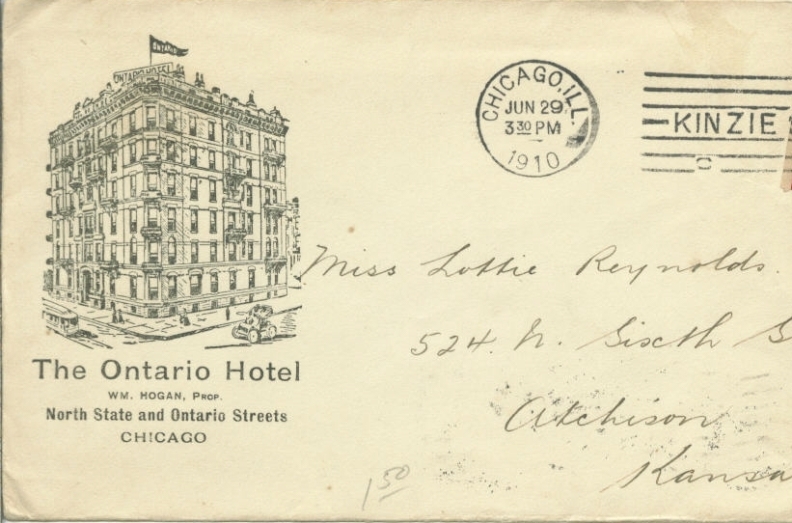 ONTARIO
ONTARIO HOTEL
The Ontario Hotel
WM. HOGAN, PROP.
North State and Ontario Streets
CHICAGO
CHICAGO, ILL.
JUN 29
3 30 PM
1910
KINZIE
Miss Lottie Reynolds.
524. N. Sixth S
Atchison
Kansa
1 50